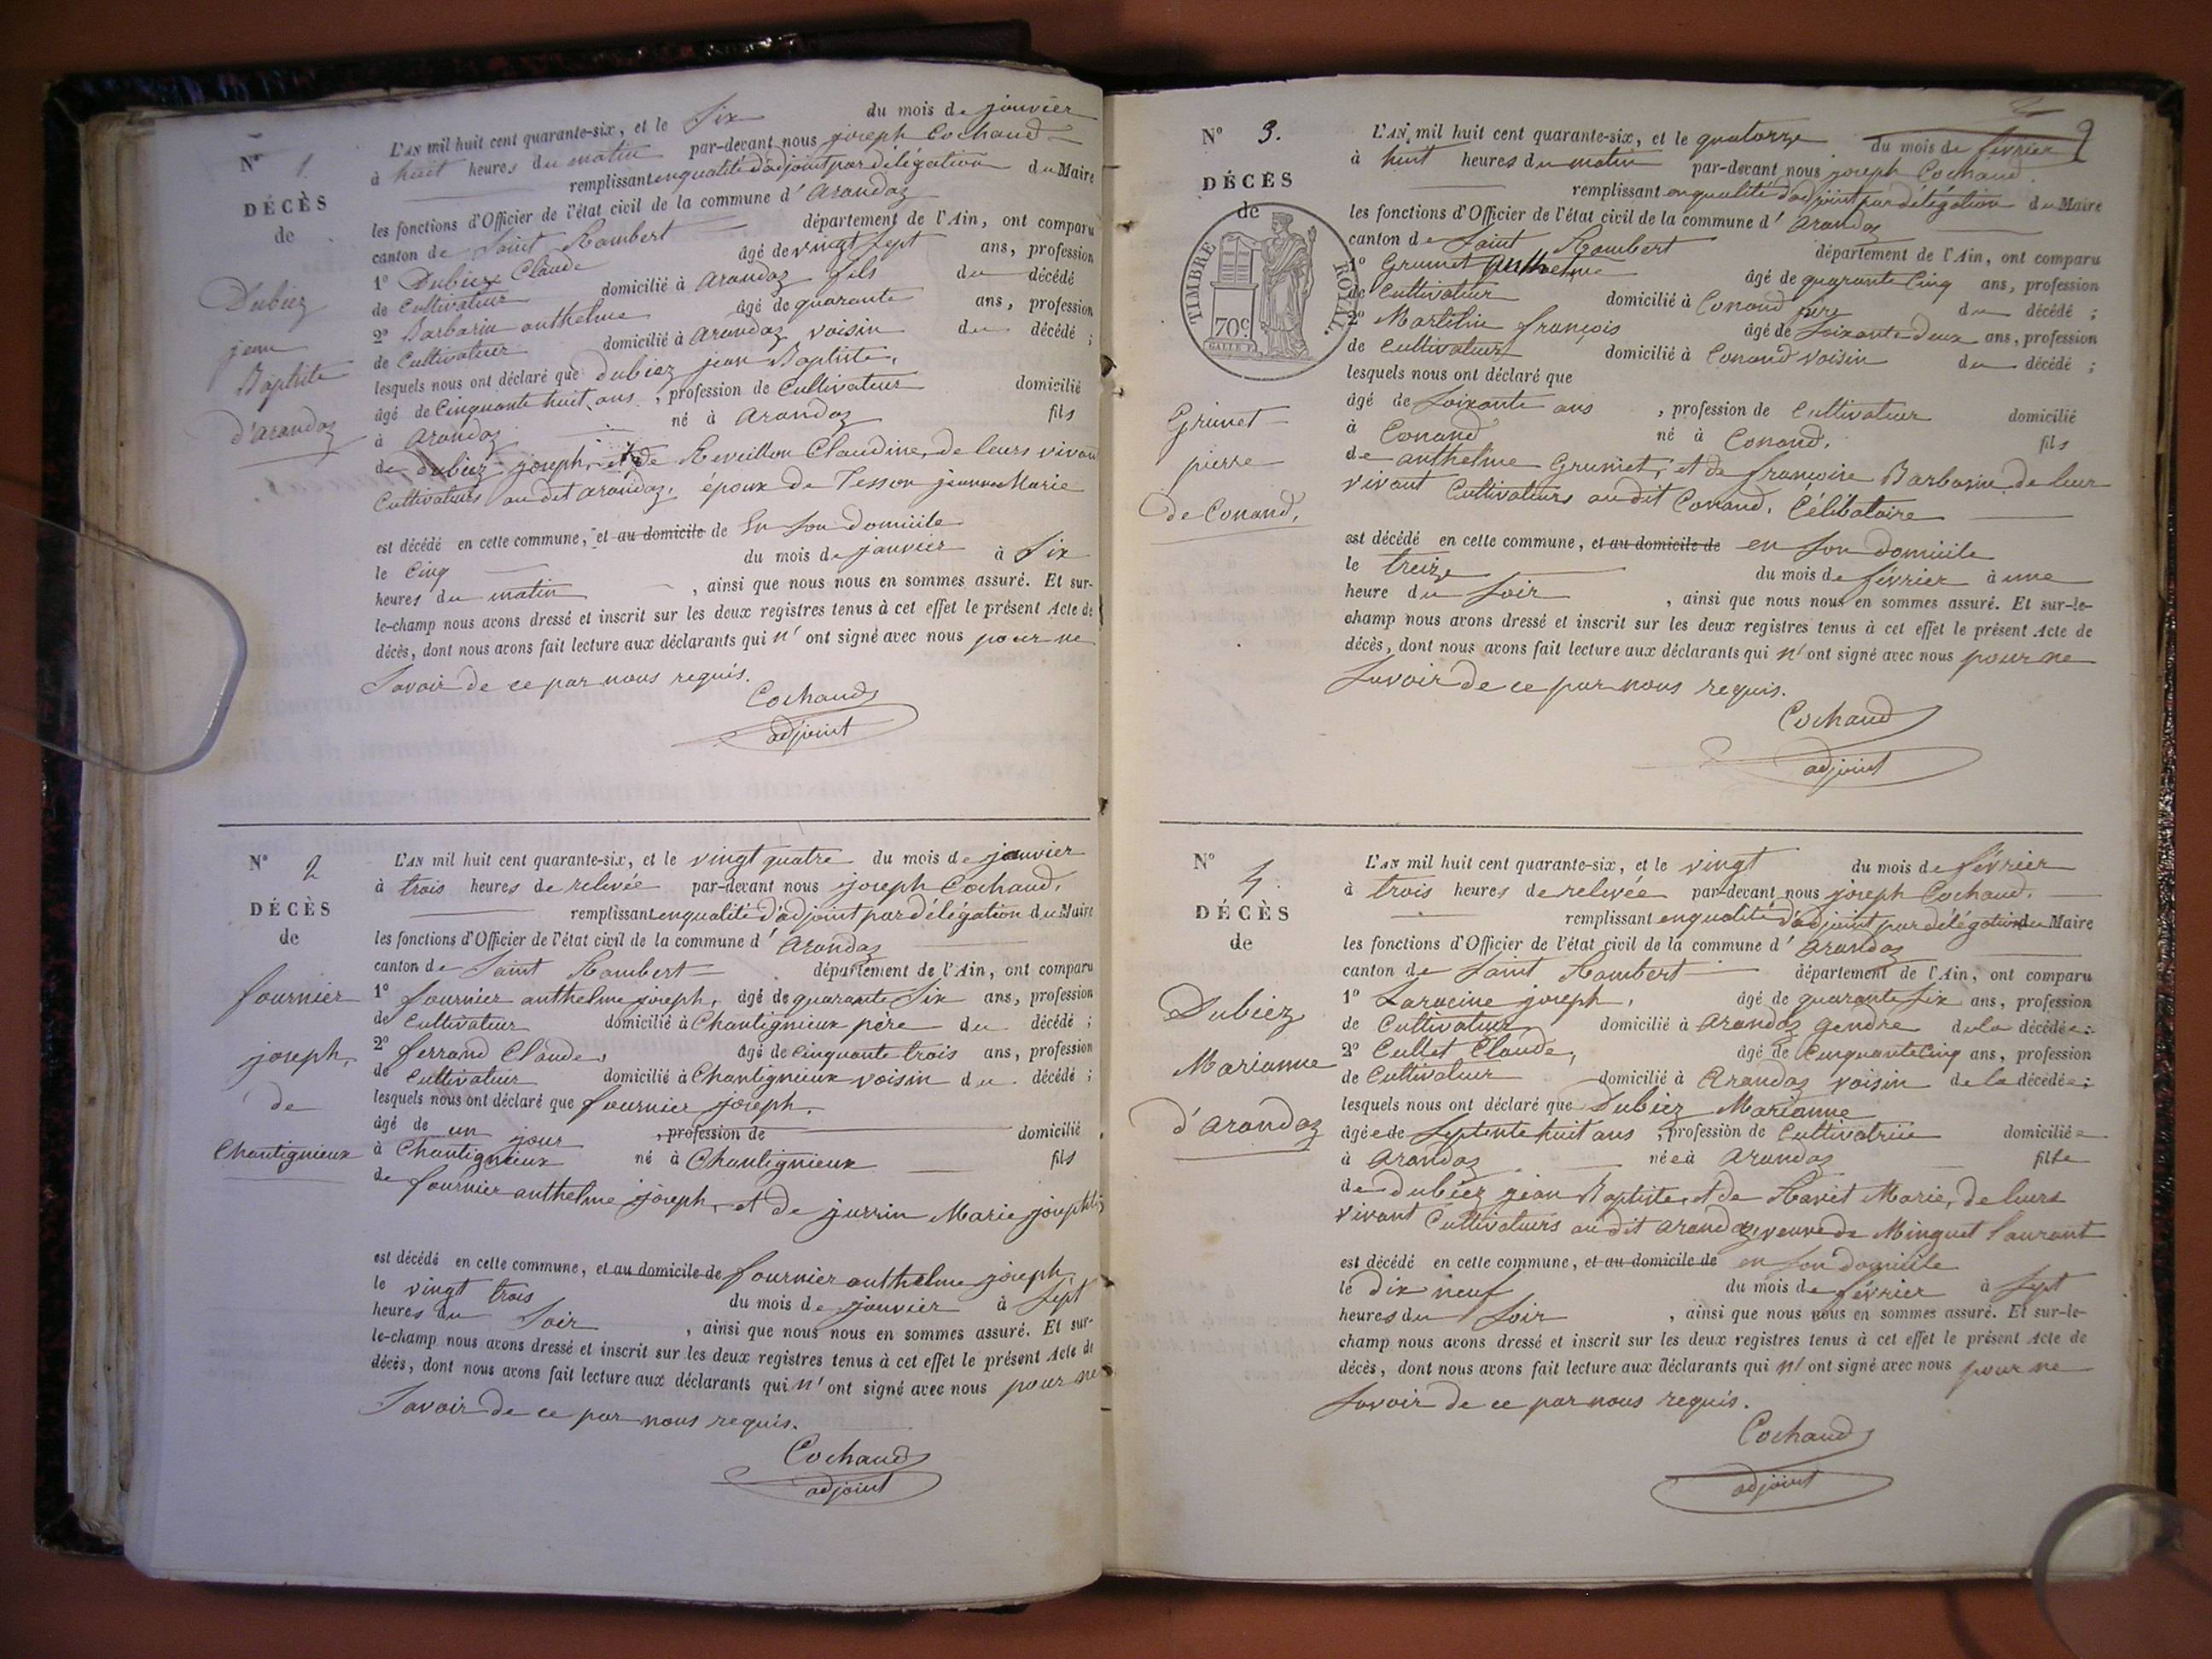 N° 1.
DÉCÈS
de
Dubiez
jean
Baptiste
d'arandaz
L'AN mil huit cent quarante-six, et le Six du mois de janvier
à huit heures du matin par-devant nous joseph Cochaud
remplissant en qualité d'adjoint par délégation du Maire
les fonctions d'Officier de l'état civil de la commune d' arandaz
canton de Saint Rambert département de l'Ain, ont comparu
1° Dubiez Claude âgé de vingt Sept ans, profession
de Cultivateur domicilié à arandaz fils du décédé
2° Barbarin anthelme âgé de quarante ans, profession
de Cultivateur domicilié à arandaz voisin du décédé ;
lesquels nous ont déclaré que Dubiez jean Baptiste,
âgé de Cinquante huit ans , profession de Cultivateur domicilié
à arandaz né à arandaz fils
de Dubiez joseph, et de Reveillon Claudine, de leurs vivant
Cultivateurs au dit arandaz, epoux de Tesson jeanne Marie
est décédé en cette commune, et au domicile de En Son Domicile
le Cinq du mois de janvier à Six
heures du matin , ainsi que nous nous en sommes assuré. Et sur-
le-champ nous avons dressé et inscrit sur les deux registres tenus à cet effet le présent Acte de
décès, dont nous avons fait lecture aux déclarants qui n' ont signé avec nous pour ne
Savoir de ce par nous requis.
Cochaud
adjoint
N° 2
DÉCÈS
de
fournier
joseph,
de
Chantignieux
L'AN mil huit cent quarante-six, et le vingt quatre du mois de janvier
à trois heures de relevée par-devant nous joseph Cochaud,
remplissant en qualité d'adjoint par délégation du Maire
les fonctions d'Officier de l'état civil de la commune d' arandaz
canton de Saint Rambert département de l'Ain, ont comparu
1° fournier anthelme joseph, âgé de quarante Six ans, profession
de Cultivateur domicilié à Chantignieux père du décédé ;
2° ferrand Claude, âgé de Cinquante trois ans, profession
de Cultivateur domicilié à Chantignieux voisin du décédé ;
lesquels nous ont déclaré que fournier joseph,
âgé de un jour , profession de domicilié
à Chantignieux né à Chantignieux fils
de fournier anthelme joseph, et de jurrin Marie
est décédé en cette commune, et au domicile de fournier anthelme joseph,
le vingt trois du mois de janvier à Sept
heures du Soir , ainsi que nous nous en sommes assuré. Et sur-
le-champ nous avons dressé et inscrit sur les deux registres tenus à cet effet le présent Acte de
décès, dont nous avons fait lecture aux déclarants qui n' ont signé avec nous pour ne
Savoir de ce par nous requis.
Cochaud
adjoint
N° 3.
DÉCÈS
de
TIMBRE ROYAL.
70c
Grumet
pierre
de Conand,
L'AN mil huit cent quarante-six, et le quatorze du mois de février
à huit heures du matin par-devant nous joseph Cochaud.
remplissant en qualité d'adjoint par délégation du Maire
les fonctions d'Officier de l'état civil de la commune d' arandaz
canton de Saint Rambert département de l'Ain, ont comparu
1° Grumet anthelme âgé de quarante Cinq ans, profession
de Cultivateur domicilié à Conand du décédé ;
2° Martelin françois âgé de Soixante deux ans, profession
de Cultivateur domicilié à Conand voisin du décédé ;
lesquels nous ont déclaré que
âgé de Soixante ans , profession de Cultivateur domicilié
à Conand né à Conand, fils
de anthelme Grumet, et de françoise Barbarin de leur
vivant Cultivateurs au dit Conand, Célibataire
est décédé en cette commune, et au domicile de en Son Domicile
le treize du mois de février à une
heure du Soir , ainsi que nous nous en sommes assuré. Et sur-le-
champ nous avons dressé et inscrit sur les deux registres tenus à cet effet le présent Acte de
décès, dont nous avons fait lecture aux déclarants qui n' ont signé avec nous pour ne
Savoir de ce par nous requis.
Cochaud
adjoint
N° 4.
DÉCÈS
de
Dubiez
Marianne
d'arandaz
L'AN mil huit cent quarante-six, et le vingt du mois de février
à trois heures de relevée par-devant nous joseph Cochaud.
remplissant en qualité d'adjoint par délégation du Maire
les fonctions d'Officier de l'état civil de la commune d' arandaz
canton de Saint Rambert département de l'Ain, ont comparu
1° Laracine joseph, âgé de quarante six ans, profession
de Cultivateur domicilié à arandaz gendre de la décédée ;
2° Cullet Claude, âgé de Cinquante Cinq ans, profession
de Cultivateur domicilié à Arandaz voisin de la décédée ;
lesquels nous ont déclaré que Dubiez Marianne
âgée de Septente huit ans , profession de Cultivatrice domiciliée
à arandaz née à arandaz fille
de Dubiez jean Baptiste, et de Ravit Marie, de leurs
vivant Cultivateurs au dit arandaz, veuve de Minguet Laurant
est décédé en cette commune, et au domicile de en Son Domicile
le Dix neuf du mois de février à Sept
heures du Soir , ainsi que nous nous en sommes assuré. Et sur-le-
champ nous avons dressé et inscrit sur les deux registres tenus à cet effet le présent Acte de
décès, dont nous avons fait lecture aux déclarants qui n' ont signé avec nous pour ne
Savoir de ce par nous requis.
Cochaud
adjoint